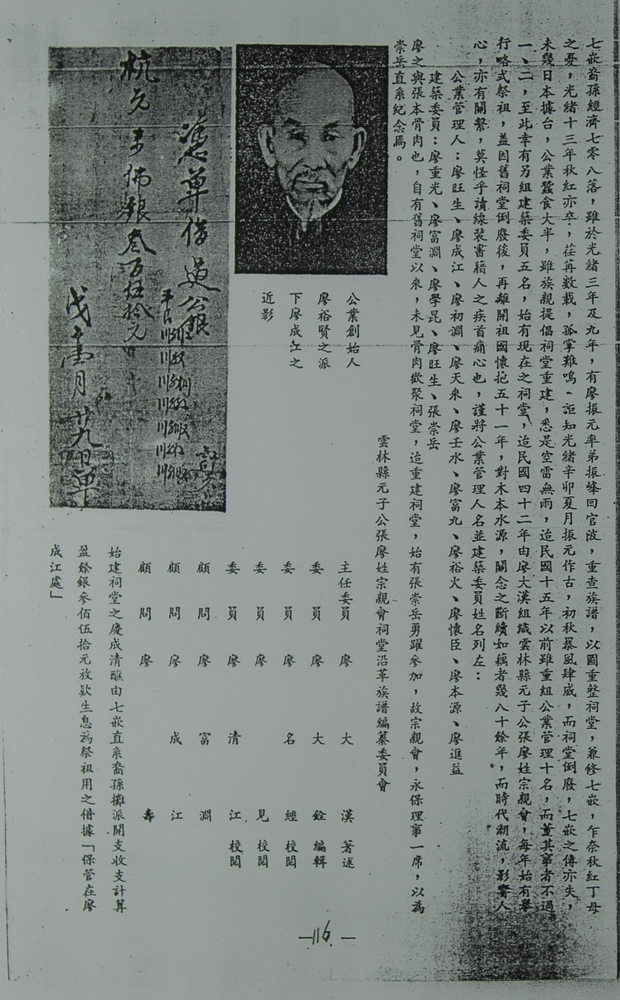 七嵌裔孫經濟七零八落，雖於光緒三年及九年，有廖振元率弟振峰回官陂，重查族譜，以圖重整祠堂，兼修七嵌，乍奈秋紅丁母
之憂，光緒十三年秋紅亦卒，荏苒數載，孤掌難鳴、詎知光緒辛卯夏月振元作古，初秋暴風肆威，而祠堂倒廢，七嵌之傳亦失，
未幾日本據台，公業蠶食大半，雖族親提倡祠堂重建，悉是空雷無雨，迨民國十五年以前雖重組公業管理十名，而董其事者不過
一、二，至此幸有另組建築委員五名，始有現在之祠堂，迨民國四十二年由廖大漢組織雲林縣元子公張廖姓宗親會，每年始有舉
行略式祭祖，蓋因舊祠堂倒廢後，再離開祖國懷抱五十一年，對木本水源，關念之斷續如藕者幾八十餘年，而時代潮流，影響人
心，亦有關繫，莫怪乎讀線裝書籍人之疾首痛心也，謹將公業管理人名並建築委員姓名列左：
公業管理人：廖旺生、廖成江、廖初淵、廖天來、廖壬水、廖富九、廖裕火、廖懷臣、廖本源、廖進益
建築委員：廖重光、廖富淵、廖學昆、廖旺生、張崇岳
廖之與張本骨肉也，自有舊祠堂以來，未見骨肉歡聚祠堂，迨重建祠堂，始有張崇岳勇躍參加，故宗親會，永保理事一席，以為
崇岳直系紀念焉。
雲林縣元子公張廖姓宗親會祠堂沿革族譜編纂委員會
主任委員 廖大漢 著述
委員 廖大銓 編輯
委員 廖名經 校閱
委員 廖見 校閱
委員 廖清江 校閱
顧問 廖富淵
顧問 廖成江
顧問 廖壽
公業創始人
廖裕賢之派
下廖成江之
近影
憑單借過公銀
杭元來佛銀叁百伍拾元
始建祠堂之慶成清醮由七嵌直系裔孫攤派開支收支計算
盈餘銀參佰伍拾元放欵生息為祭祖用之借據「保管在廖
成江處」
—116—